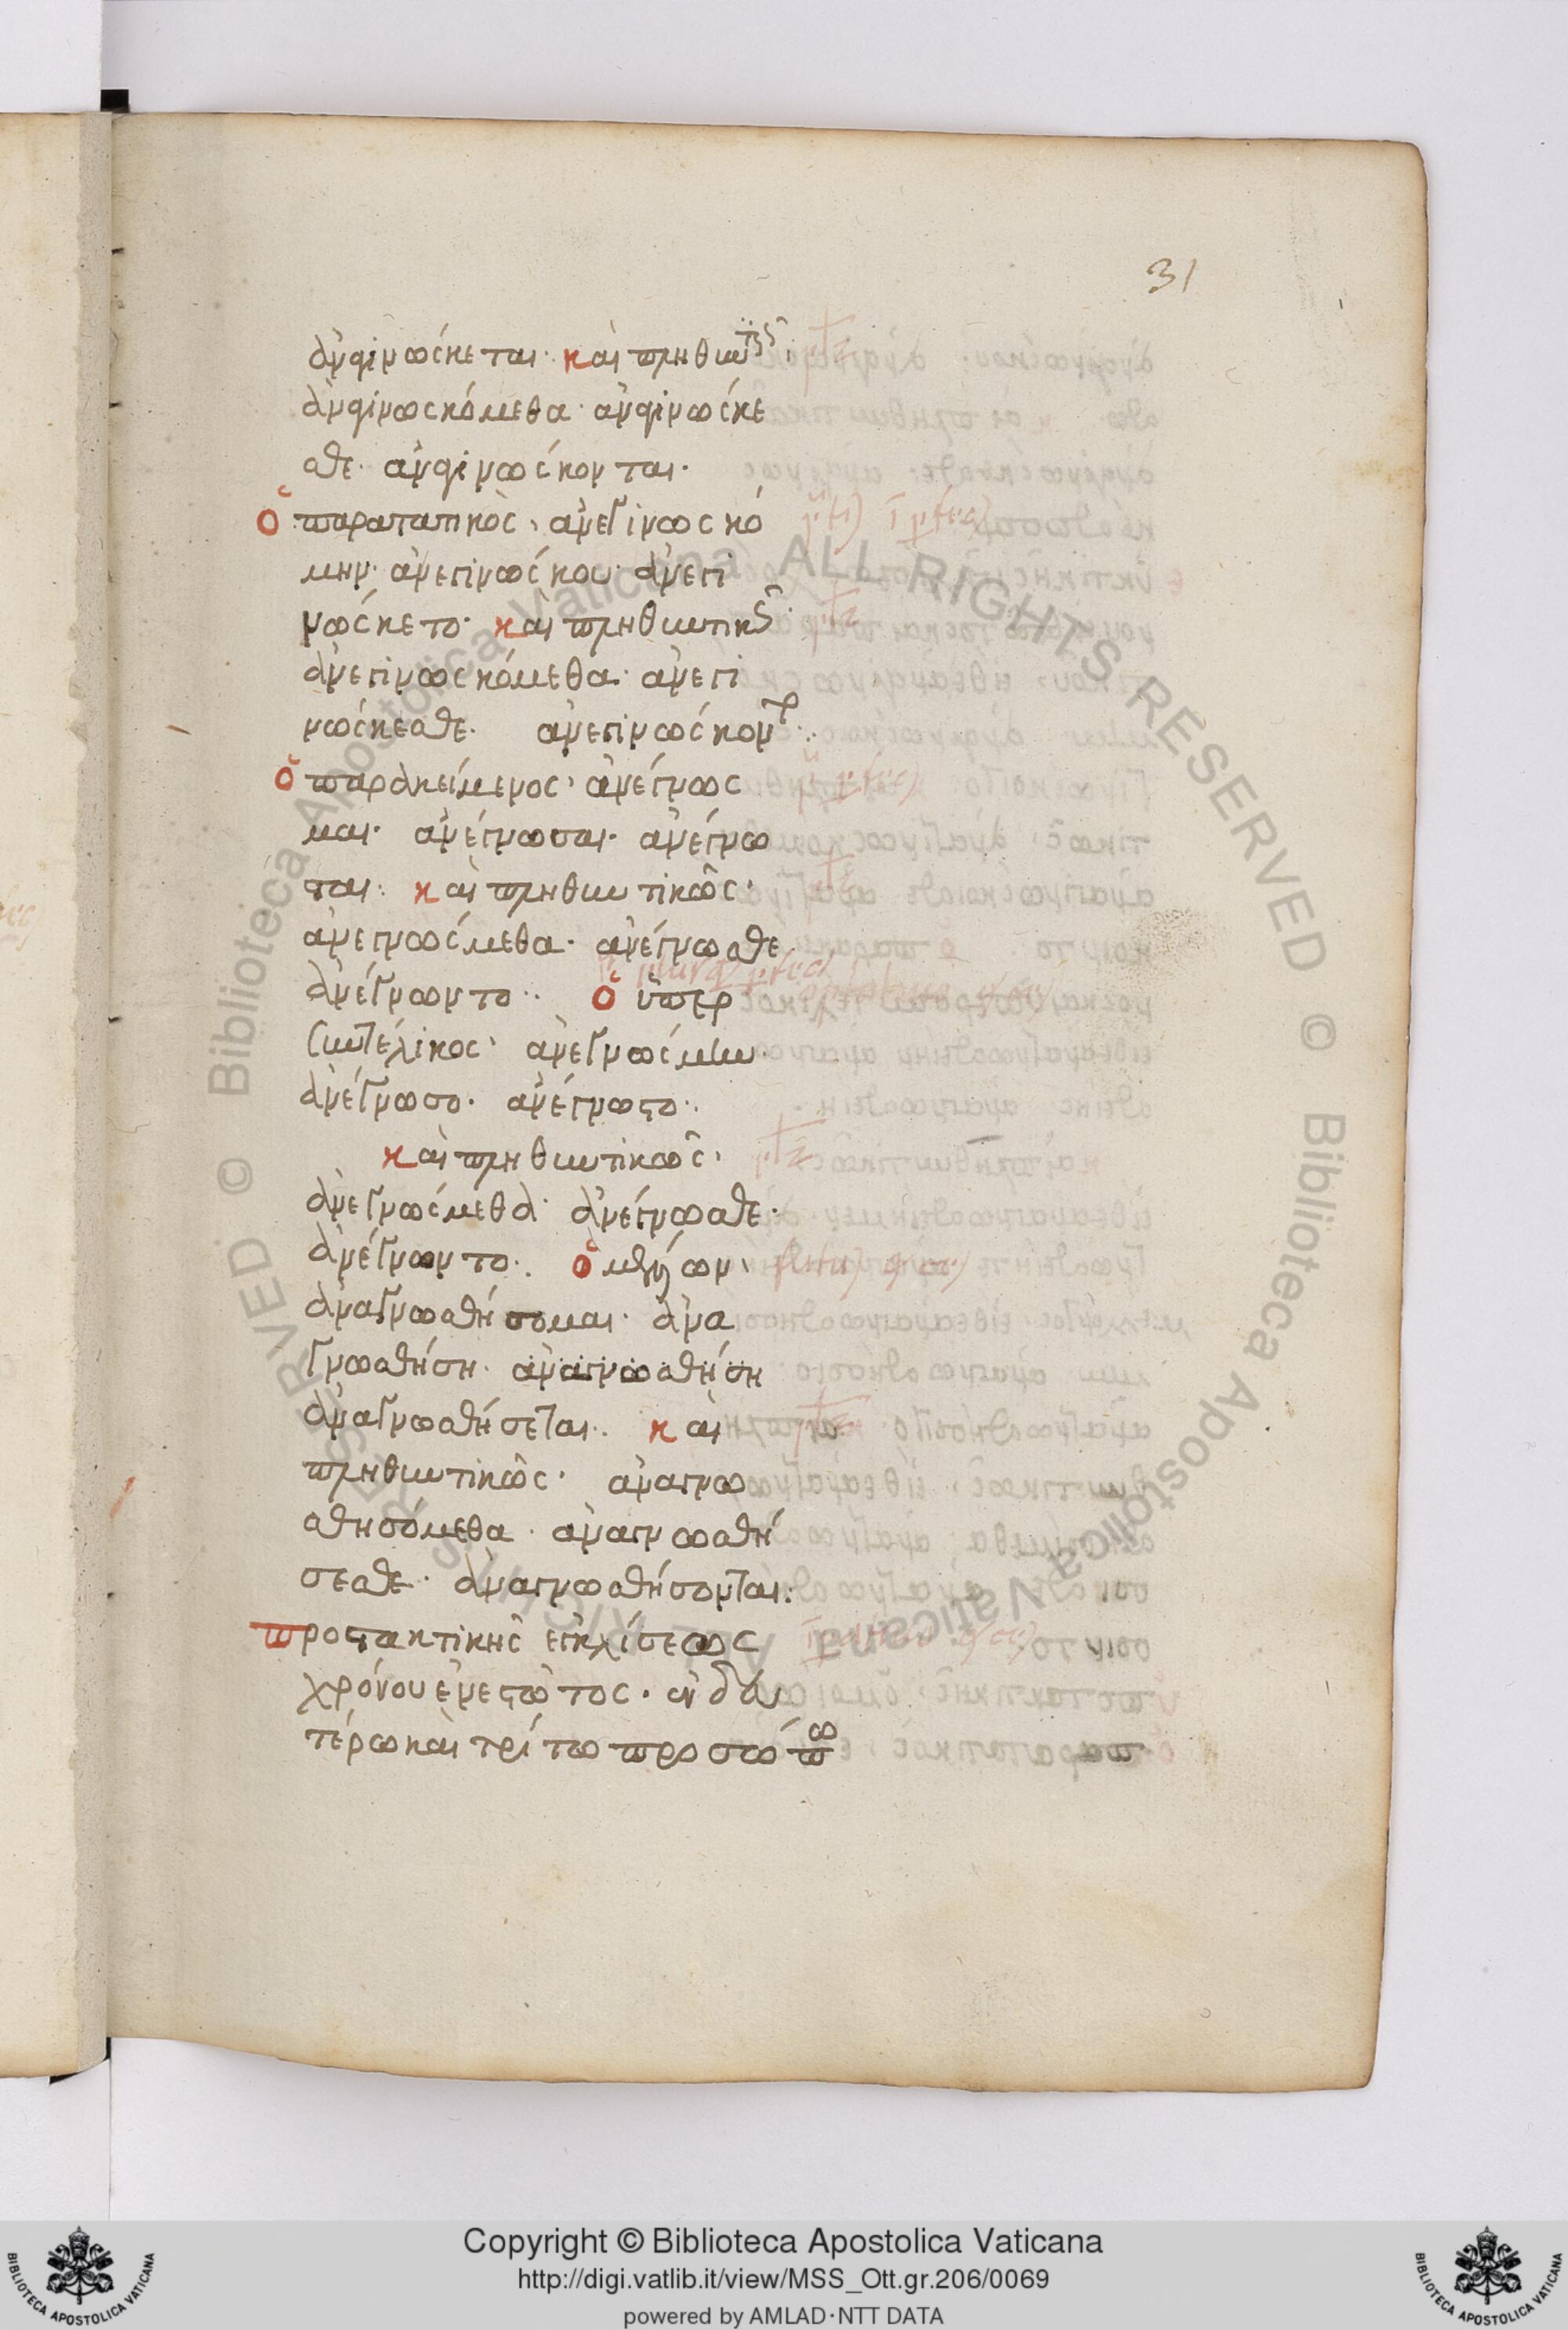 31
ἀναγινώσκεται· καὶ πληθυντικῶς·
ἀναγινωσκόμεθα· ἀναγινώσκε
σθε· ἀναγινώσκονται·
ὁ παρατατικὸς, ἀνεγινωσκό
μην· ἀνεγινώσκου· ἀνεγι
νώσκετο· καὶ πληθυντικῶς·
ἀνεγινωσκόμεθα· ἀνεγι
νώσκεσθε· ἀνεγινώσκοντο·
ὁ παρακείμενος, ἀνέγνωσ
μαι· ἀνέγνωσαι· ἀνέγνω
σται· καὶ πληθυντικῶς,
ἀνεγνώσμεθα· ἀνέγνωσθε
ἀνέγνωντο·· ὁ ὑπερ
συντέλικος, ἀνεγνώσμην·
ἀνέγνωσο· ἀνέγνωστο··
καὶ πληθυντικῶς,
ἀνεγνώσμεθα· ἀνέγνωσθε·
ἀνέγνωντο·. ὁ μέλλων,
ἀναγνωσθήσομαι· ἀνα
γνωσθήση· ἀναγνωσθήση
ἀναγνωσθήσεται·. καὶ
πληθυντικῶς· ἀναγνω
σθησόμεθα· ἀναγνωσθή
σεσθε· ἀναγνωσθήσονται:
προστακτικῆς ἐγκλίσεως
χρόνου ἐνεστῶτος· ἐν δευ
τέρω καὶ τρίτω προσώπω
Copyright © Biblioteca Apostolica Vaticana
http://digi.vatlib.it/view/MSS_Ott.gr.206/0069
powered by AMLAD·NTT DATA
BIBLIOTECA APOSTOLICA VATICANA
BIBLIOTECA APOSTOLICA VATICANA
© Biblioteca Apostolica Vaticana ALL RIGHTS RESERVED © Biblioteca Apostolica Vaticana ALL RIGHTS RESERVED